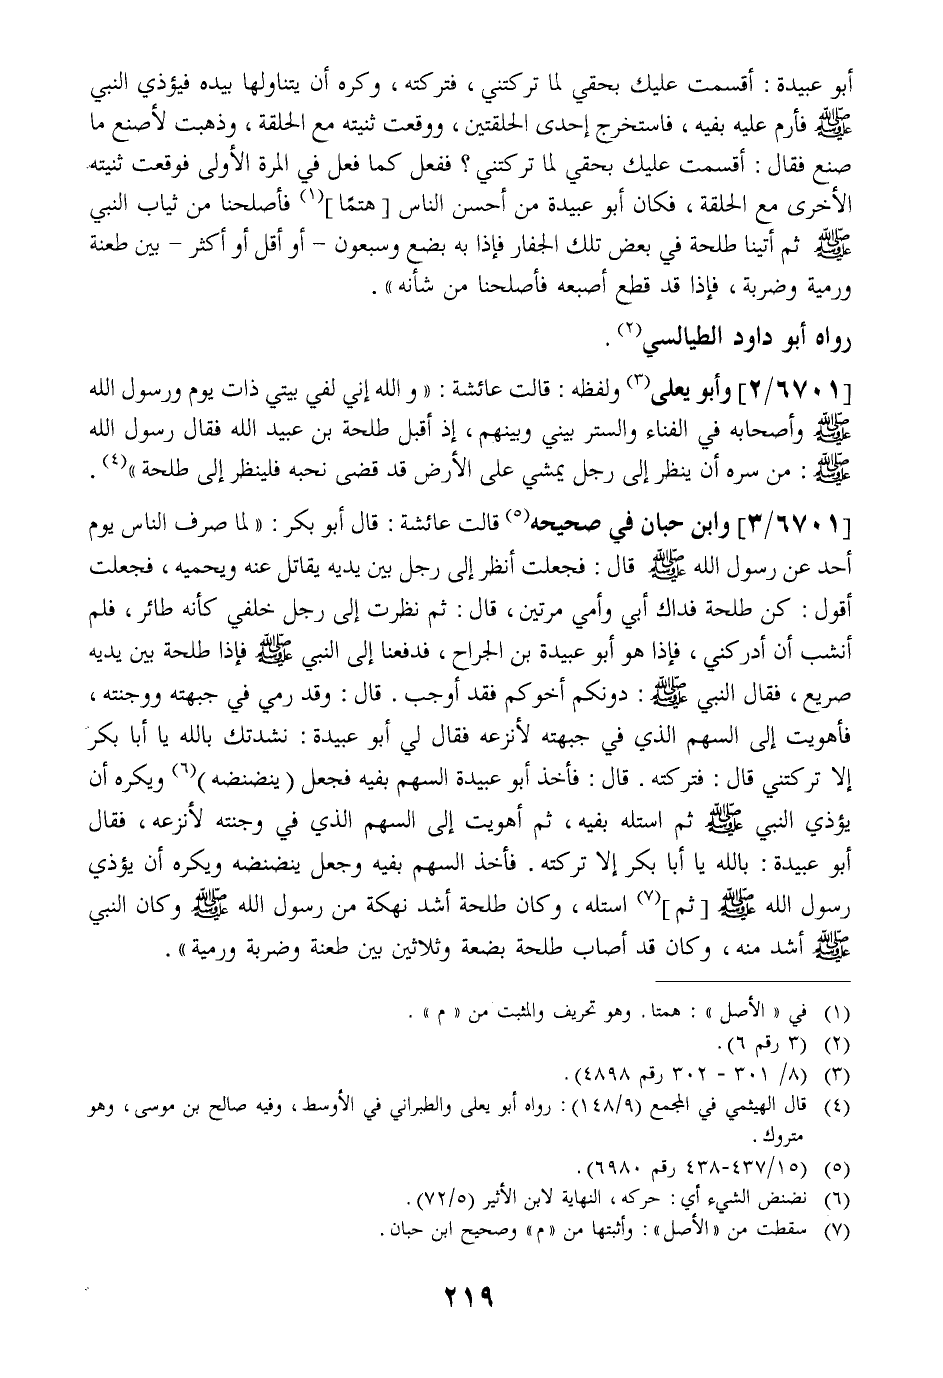 أبو عبيدة : أقسمت عليك بحقي لما تركتني ، فتركته ، وكره أن يتناولها بيده فيؤذي النبي
ﷺ فأرم عليه بفيه ، فاستخرج إحدى الحلقتين ، ووقعت ثنيته مع الحلقة ، وذهبت لأصنع ما
صنع فقال : أقسمت عليك بحقي لما تركتني ؟ ففعل كما فعل في المرة الأولى فوقعت ثنيته
الأخرى مع الحلقة ، فكان أبو عبيدة من أحسن الناس [ هتمًا ](١) فأصلحنا من ثياب النبي
ﷺ ثم أتينا طلحة في بعض تلك الجفار فإذا به بضع وسبعون – أو أقل أو أكثر – بين طعنة
ورمية وضربة ، فإذا قد قطع أصبعه فأصلحنا من شأنه » .
رواه أبو داود الطيالسي(٢) .
[٢/٦٧٠١] وأبو يعلى(٣) ولفظه : قالت عائشة : « و الله إني لفي بيتي ذات يوم ورسول الله
ﷺ وأصحابه في الفناء والستر بيني وبينهم ، إذ أقبل طلحة بن عبيد الله فقال رسول الله
ﷺ : من سره أن ينظر إلى رجل يمشي على الأرض قد قضى نحبه فلينظر إلى طلحة »(٤) .
[٣/٦٧٠١] وابن حبان في صحيحه(٥) قالت عائشة : قال أبو بكر : « لما صرف الناس يوم
أحد عن رسول الله ﷺ قال : فجعلت أنظر إلى رجل بين يديه يقاتل عنه ويحميه ، فجعلت
أقول : كن طلحة فداك أبي وأمي مرتين ، قال : ثم نظرت إلى رجل خلفي كأنه طائر ، فلم
أنشب أن أدركني ، فإذا هو أبو عبيدة بن الجراح ، فدفعنا إلى النبي ﷺ فإذا طلحة بين يديه
صريع ، فقال النبي ﷺ : دونكم أخوكم فقد أوجب . قال : وقد رمي في جبهته ووجنته ،
فأهويت إلى السهم الذي في جبهته لأنزعه فقال لي أبو عبيدة : نشدتك بالله يا أبا بكر
إلا تركتني قال : فتركته . قال : فأخذ أبو عبيدة السهم بفيه فجعل ( ينضنضه )(٦) ويكره أن
يؤذي النبي ﷺ ثم استله بفيه ، ثم أهويت إلى السهم الذي في وجنته لأنزعه ، فقال
أبو عبيدة : بالله يا أبا بكر إلا تركته . فأخذ السهم بفيه وجعل ينضنضه ويكره أن يؤذي
رسول الله ﷺ [ ثم ](٧) استله ، وكان طلحة أشد نهكة من رسول الله ﷺ وكان النبي
ﷺ أشد منه ، وكان قد أصاب طلحة بضعة وثلاثين بين طعنة وضربة ورمية » .
(١) في « الأصل » : همتا . وهو تحريف والمثبت من « م » .
(٢) (٣ رقم ٦) .
(٣) (٨/ ٣٠١ – ٣٠٢ رقم ٤٨٩٨) .
(٤) قال الهيثمي في المجمع (١٤٨/٩) : رواه أبو يعلى والطبراني في الأوسط ، وفيه صالح بن موسى ، وهو
متروك .
(٥) (٤٣٧/١٥-٤٣٨ رقم ٦٩٨٠) .
(٦) نضنض الشيء أي : حركه ، النهاية لابن الأثير (٧٢/٥) .
(٧) سقطت من «الأصل» : وأثبتها من «م» وصحيح ابن حبان .
٢١٩